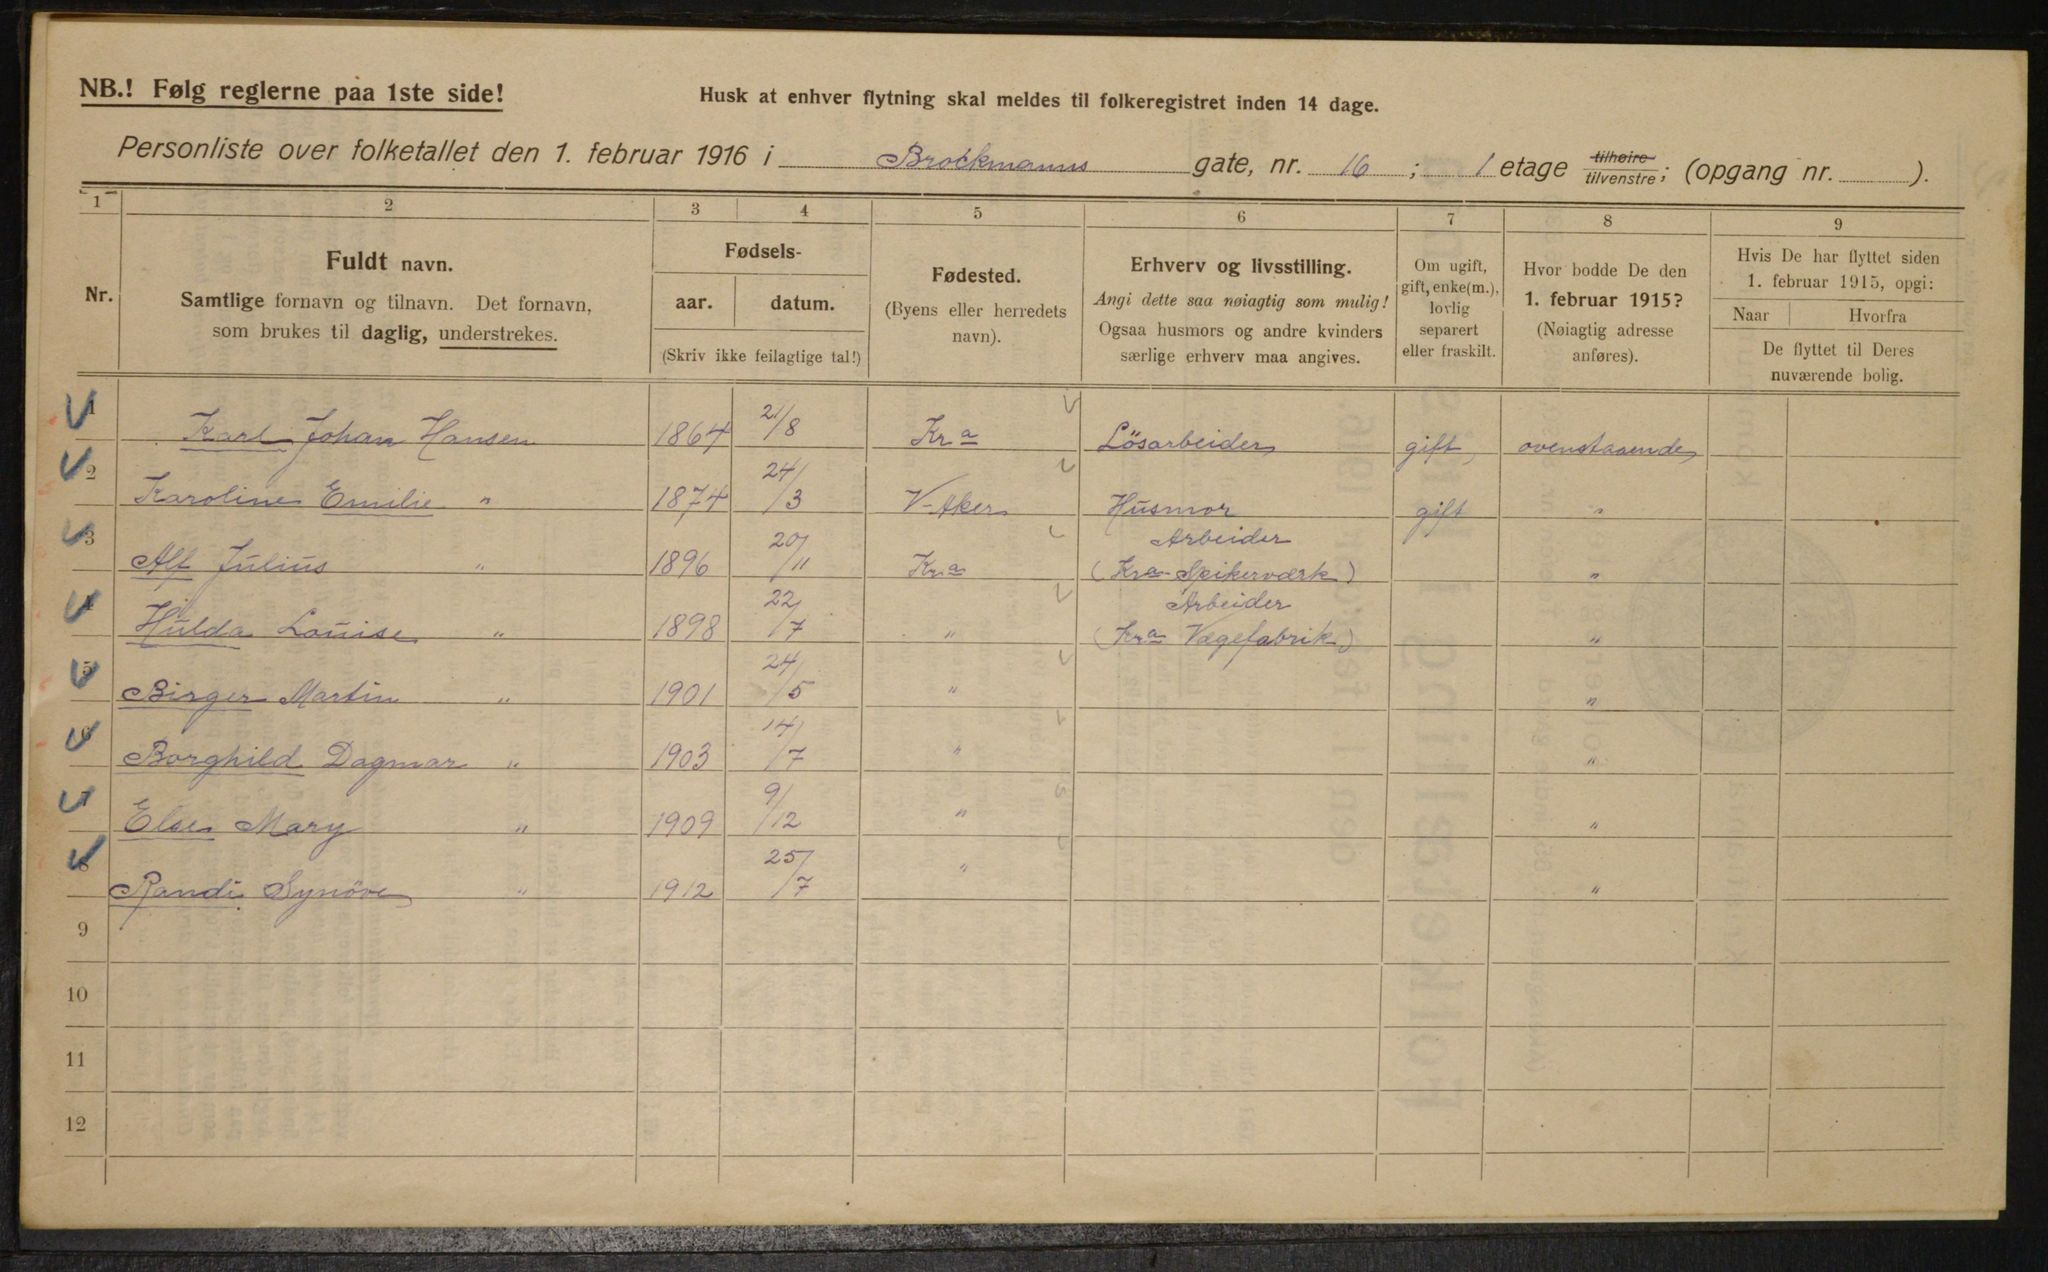 NB.! Følg reglerne paa 1ste side!
Husk at enhver flytning skal meldes til folkeregistret inden 14 dage.
Personliste over folketallet den 1. februar 1916 i Brockmanns gate, nr. 16; 1 etage tilhøire tilvenstre; (opgang nr. ).
1 2 3 4 5 6 7 8 9
Nr.
Fuldt navn.
Samtlige fornavn og tilnavn. Det fornavn,
som brukes til daglig, understrekes.
Fødsels-
aar. datum.
(Skriv ikke feilagtige tal!)
Fødested.
(Byens eller herredets
navn).
Erhverv og livsstilling.
Angi dette saa nøiagtig som mulig!
Ogsaa husmors og andre kvinders
særlige erhverv maa angives.
Om ugift,
gift, enke(m.),
lovlig
separert
eller fraskilt.
Hvor bodde De den
1. februar 1915?
(Nøiagtig adresse
anføres).
Hvis De har flyttet siden
1. februar 1915, opgi:
Naar Hvorfra
De flyttet til Deres
nuværende bolig.
1 Karl Johan Hansen 1864 21/8 Kra Lösarbeider gift ovenstaaende
2 Karoline Emilie " 1874 24/3 V-Aker Husmor gift "
3 Alf Julius " 1896 20/11 Kra Arbeider (Kra Spikerværk) "
4 Hulda Louise " 1898 22/7 " Arbeider (Kra Vægefabrik) "
5 Birger Martin " 1901 24/5 " "
6 Borghild Dagmar " 1903 14/7 " "
7 Else Mary " 1909 9/12 " "
8 Randi Synöve " 1912 25/7 " "
9
10
11
12